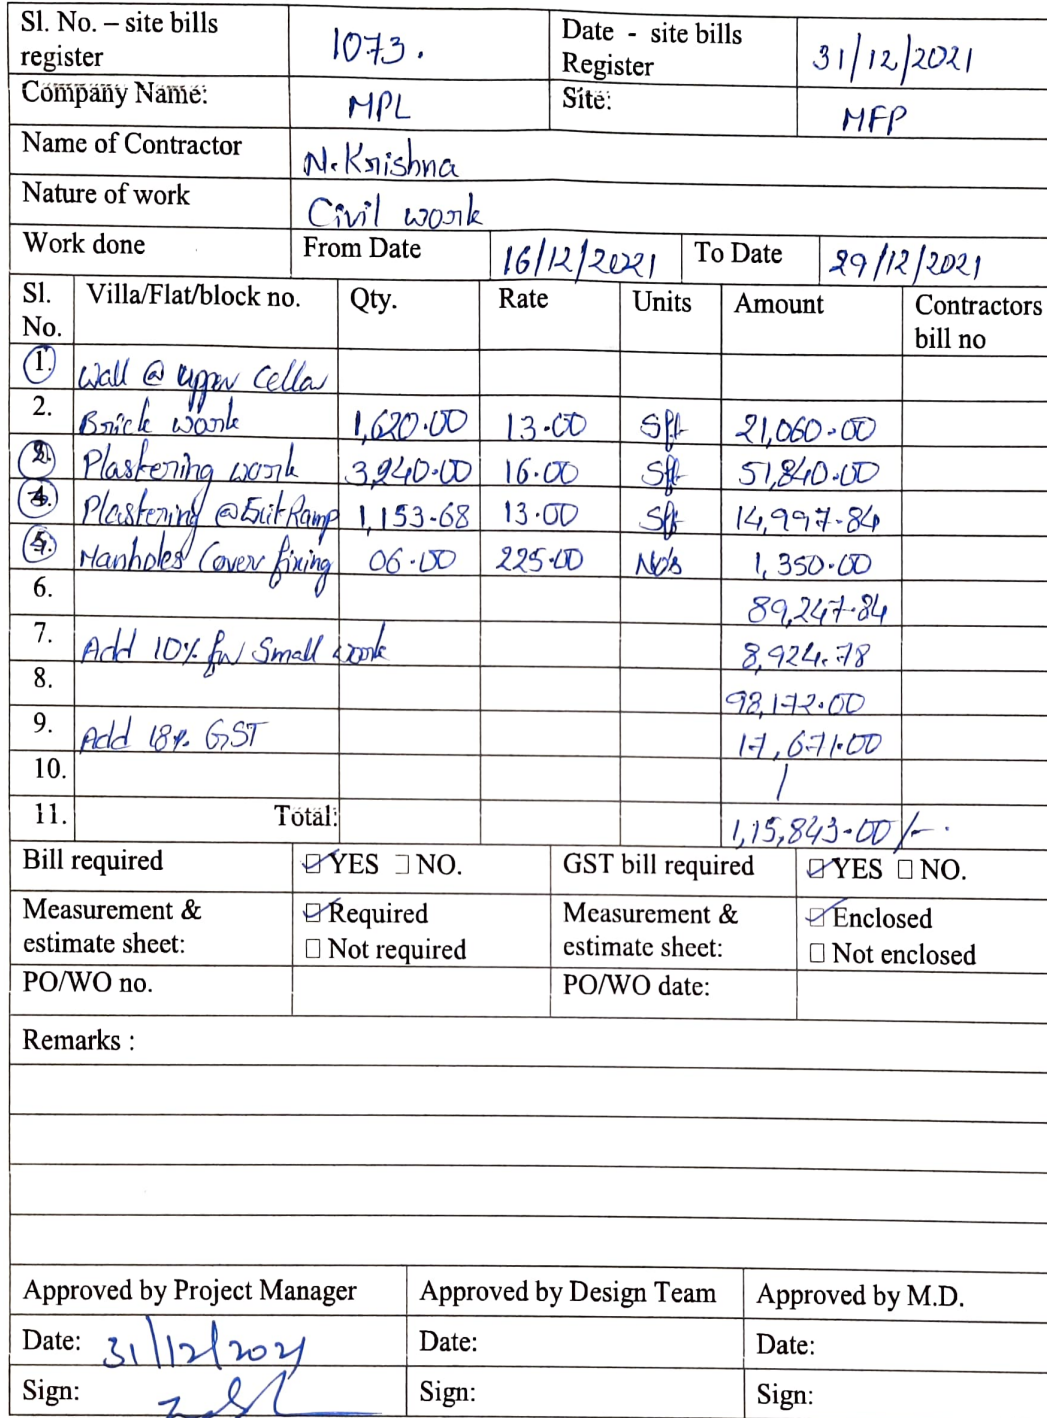 Sl. No. – site bills register 1073. Date - site bills Register 31/12/2021
Company Name: MPL Site: MFP
Name of Contractor N. Krishna
Nature of work Civil work
Work done From Date 16/12/2021 To Date 29/12/2021
Sl. No. Villa/Flat/block no. Qty. Rate Units Amount Contractors bill no
1. Wall @ upper Cellar
2. Brick work 1,620.00 13.00 Sft 21,060.00
3. Plastering work 3,240.00 16.00 Sft 51,840.00
4. Plastering @ Exit Ramp 1,153.68 13.00 Sft 14,997.84
5. Manholes Cover fixing 06.00 225.00 No's 1,350.00
6. 89,247.84
7. Add 10% for Small work 8,924.78
8. 98,172.00
9. Add 18% GST 17,671.00
10. /
11. Total: 1,15,843.00/-.
Bill required YES NO. GST bill required YES NO.
Measurement & estimate sheet: Required Measurement & estimate sheet: Enclosed
Not required Not enclosed
PO/WO no. PO/WO date:
Remarks :
Approved by Project Manager Approved by Design Team Approved by M.D.
Date: 31/12/2021 Date: Date:
Sign: Sign: Sign: